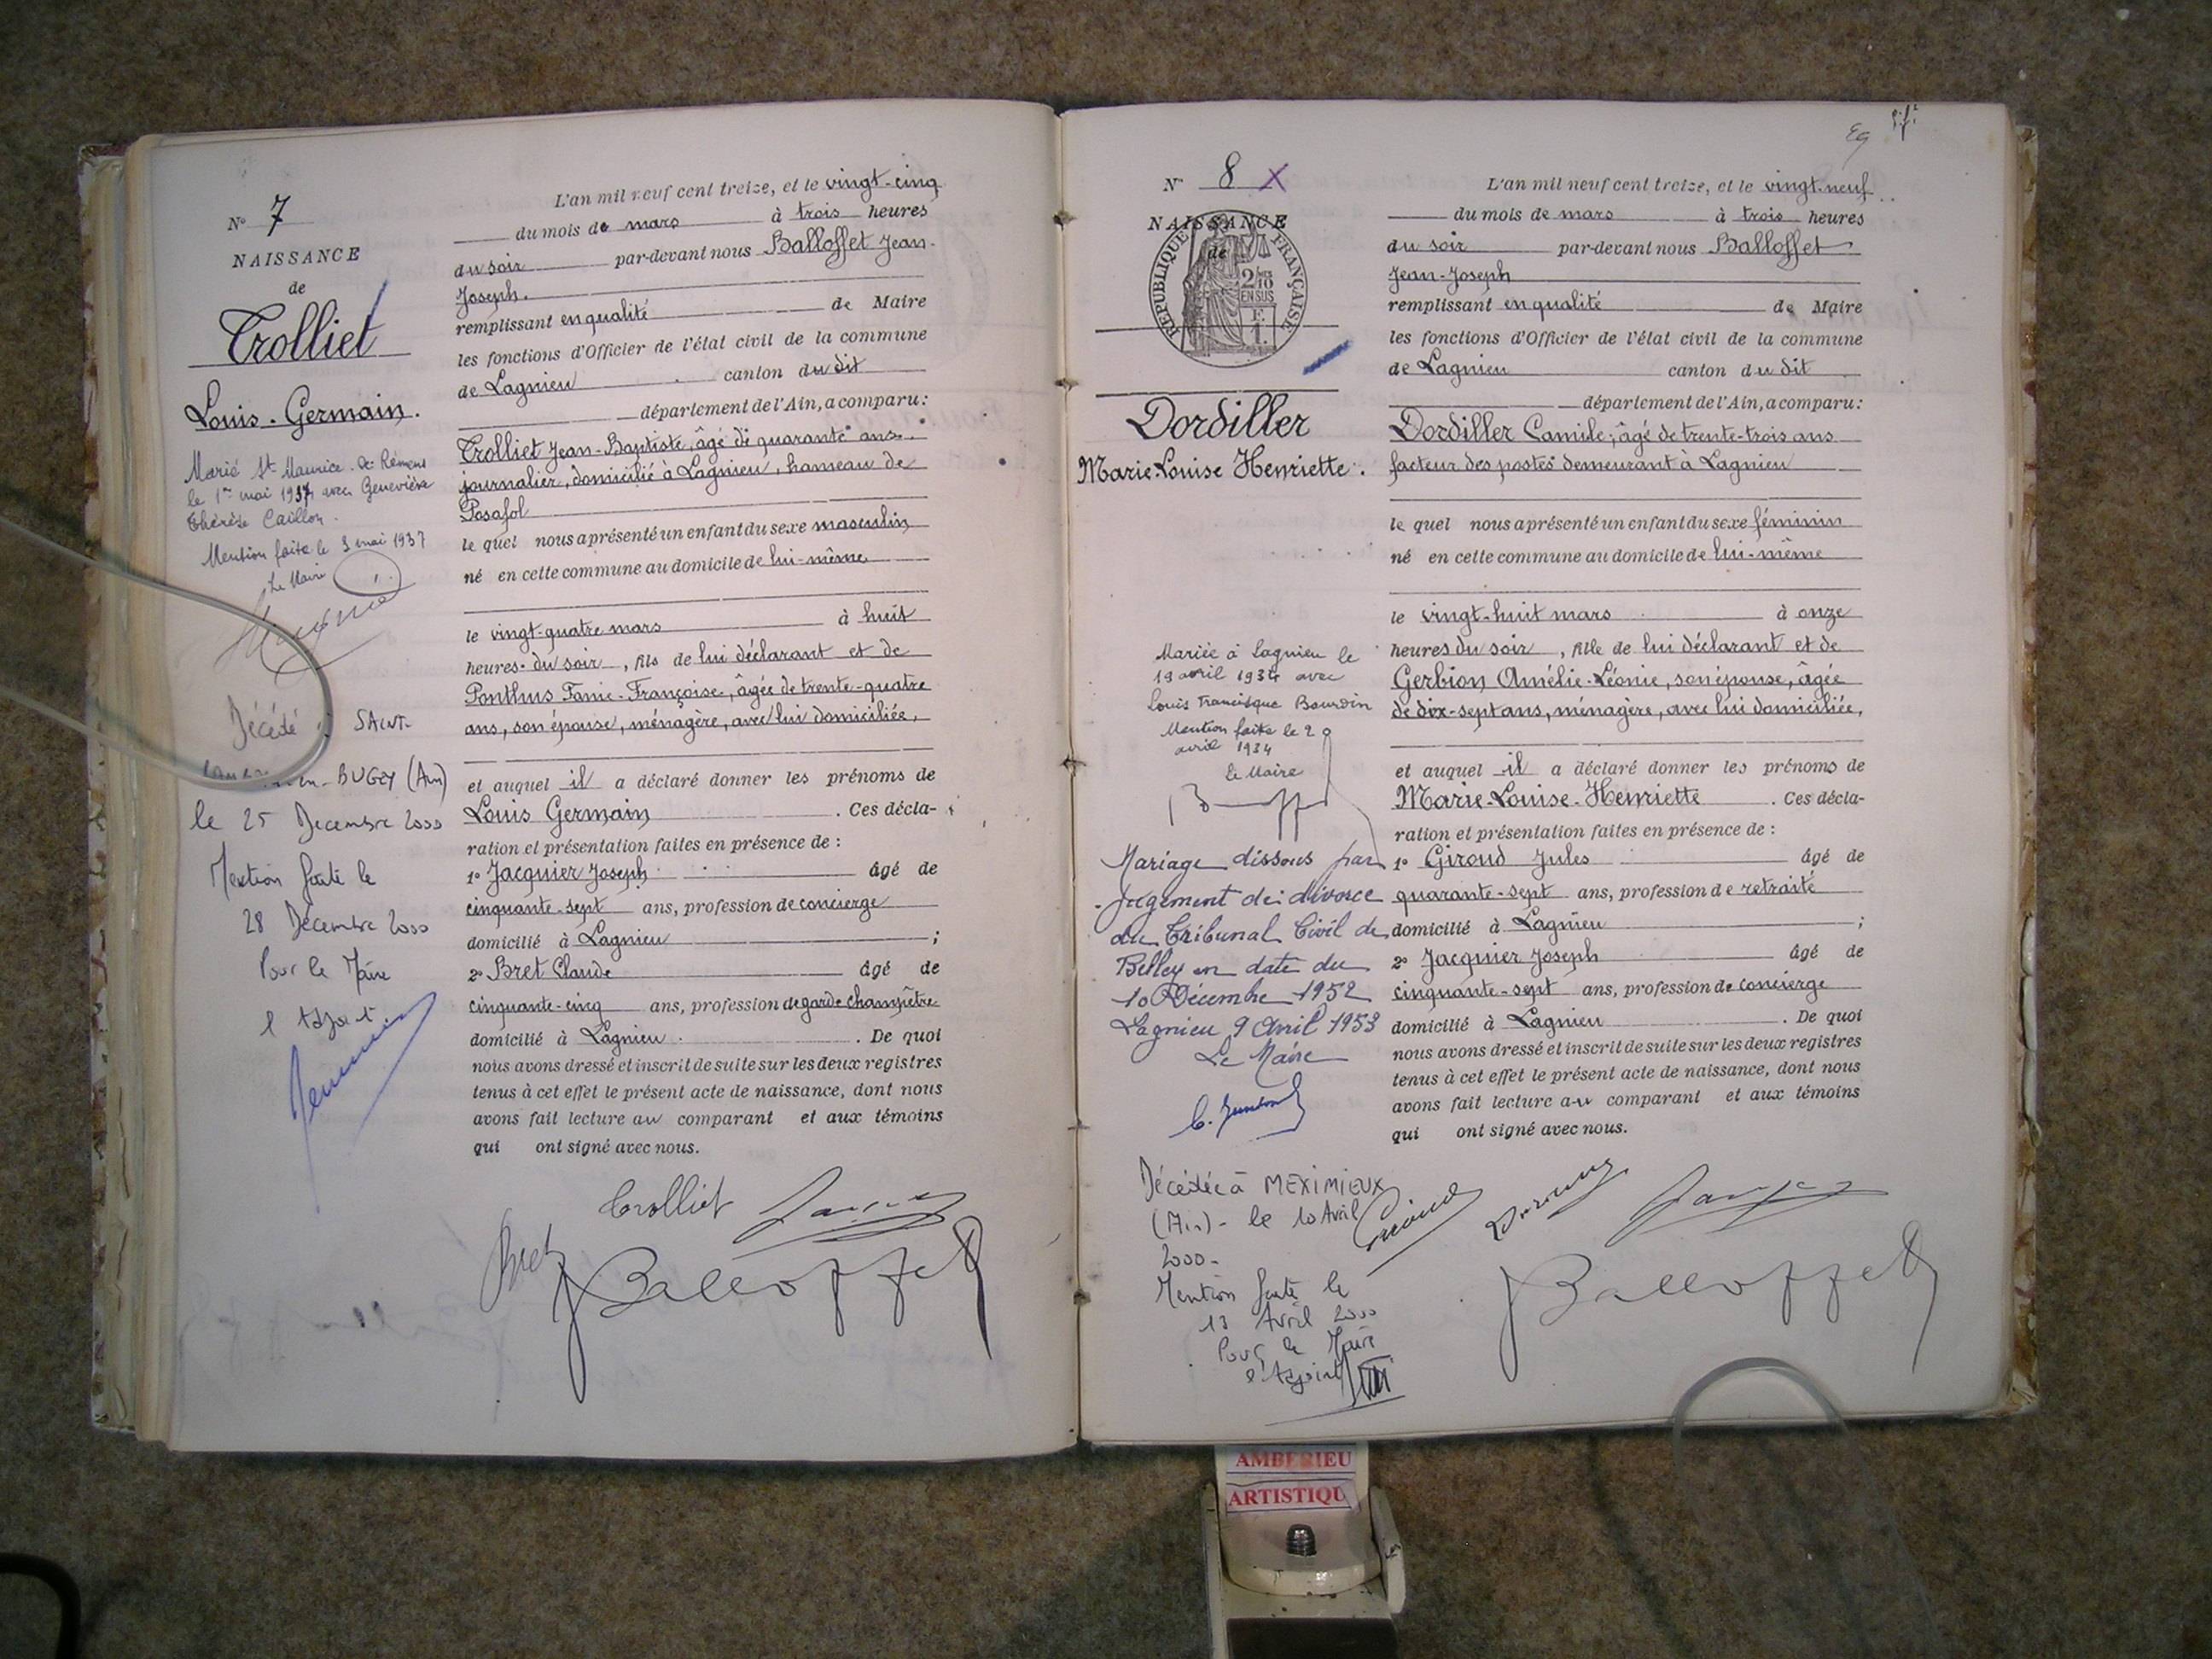 N° 7
NAISSANCE
de
Trolliet
Louis-Germain.
Marié St Maurice de Rémens
le 1er mai 1937 avec Geneviève
Thérèse Caillon.
Mention faite le 3 mai 1937
Le Maire
Décédé à SAINT-
en-BUGEY (Ain)
le 25 Decembre 2000
Mention faite le
28 Décembre 2000
Pour le Maire
l'Adjoint
L'an mil neuf cent treize, et le vingt-cinq
du mois de mars à trois heures
du soir par-devant nous Balloffet Jean-
Joseph.
remplissant en qualité de Maire
les fonctions d'Officier de l'état civil de la commune
de Lagnieu canton du dit
département de l'Ain, a comparu :
Trolliet Jean-Baptiste, âgé de quarante ans
journalier, domicilié à Lagnieu, hameau de
Posafol
le quel nous a présenté un enfant du sexe masculin
né en cette commune au domicile de lui-même
le vingt-quatre mars à huit
heures du soir, fils de lui déclarant et de
Ponthus Fanie-Françoise, âgée de trente-quatre
ans, son épouse, ménagère, avec lui domiciliée,
et auquel il a déclaré donner les prénoms de
Louis Germain. Ces décla-
ration et présentation faites en présence de :
1° Jacquier Joseph âgé de
cinquante-sept ans, profession de concierge
domicilié à Lagnieu ;
2° Bret Claude âgé de
cinquante-cinq ans, profession de garde champêtre
domicilié à Lagnieu. De quoi
nous avons dressé et inscrit de suite sur les deux registres
tenus à cet effet le présent acte de naissance, dont nous
avons fait lecture au comparant et aux témoins
qui ont signé avec nous.
Trolliet
Bret
JBalloffet
N° 8 X
NAISSANCE
de
RÉPUBLIQUE FRANÇAISE
2/10
EN SUS
Dordiller
Marie-Louise Henriette.
Mariée à Lagnieu le
19 avril 1934 avec
Louis Francisque Bourdin
Mention faite le 2
avril 1934
Le Maire
Mariage dissous par
jugement de divorce
du Tribunal Civil de
Belley en date du
10 Décembre 1952
Lagnieu 9 Avril 1953
Le Maire
Décédée à MEXIMIEUX
(Ain) - le 10 Avril
2000-
Mention faite le
13 Avril 2000
Pour le Maire
l'Adjoint
L'an mil neuf cent treize, et le vingt-neuf
du mois de mars à trois heures
du soir par-devant nous Balloffet
Jean-Joseph
remplissant en qualité de Maire
les fonctions d'Officier de l'état civil de la commune
de Lagnieu canton du dit
département de l'Ain, a comparu :
Dordiller Camile, âgé de trente-trois ans
facteur des postes demeurant à Lagnieu
le quel nous a présenté un enfant du sexe féminin
né en cette commune au domicile de lui-même
le vingt-huit mars à onze
heures du soir, fille de lui déclarant et de
Gerbion Amélie-Léonie, son épouse, âgée
de dix-sept ans, ménagère, avec lui domiciliée,
et auquel il a déclaré donner les prénoms de
Marie-Louise-Henriette. Ces décla-
ration et présentation faites en présence de :
1° Giroud Jules âgé de
quarante-sept ans, profession de retraité
domicilié à Lagnieu ;
2° Jacquier Joseph âgé de
cinquante-sept ans, profession de concierge
domicilié à Lagnieu. De quoi
nous avons dressé et inscrit de suite sur les deux registres
tenus à cet effet le présent acte de naissance, dont nous
avons fait lecture au comparant et aux témoins
qui ont signé avec nous.
JBalloffet
AMBERIEU
ARTISTIQU